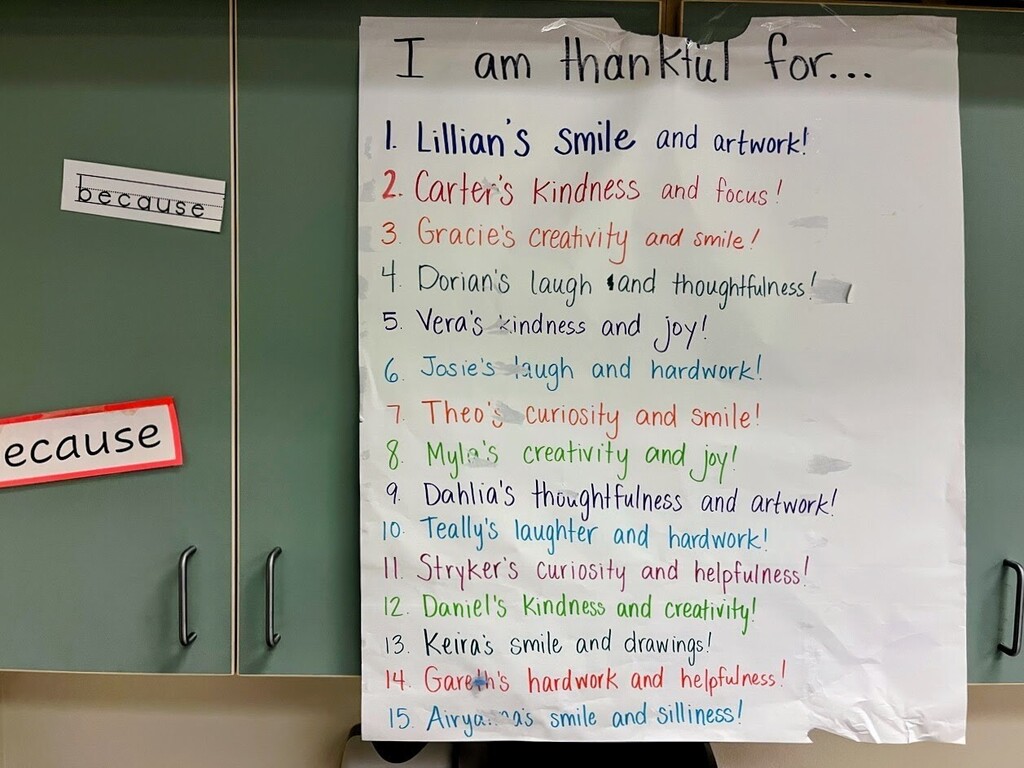 I am thankful for...
because
ecause
1. Lillian's smile and artwork!
2. Carter's kindness and focus!
3. Gracie's creativity and smile!
4. Dorian's laugh and thoughtfulness!
5. Vera's kindness and joy!
6. Josie's laugh and hardwork!
7. Theo's curiosity and smile!
8. Myla's creativity and joy!
9. Dahlia's thoughtfulness and artwork!
10. Teally's laughter and hardwork!
11. Stryker's curiosity and helpfulness!
12. Daniel's kindness and creativity!
13. Keira's smile and drawings!
14. Gareth's hardwork and helpfulness!
15. smile and silliness!